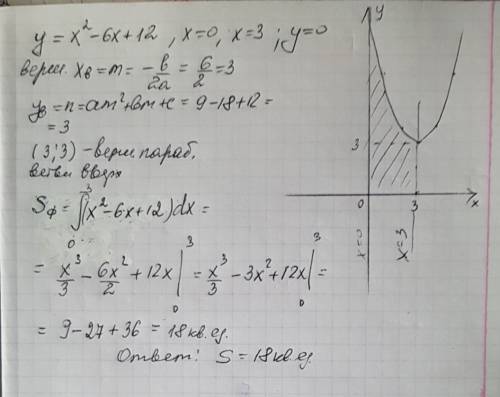 y = x² - 6x + 12 , x=0, x=3 ; y=0
верш. xв = m = -в/2a = 6/2 = 3
yв = n = am² + вm + c = 9 - 18 + 12 =
= 3
(3;3) - верш параб.
ветви вверх
Sф = ∫₀³ (x² - 6x + 12) dx =
= x³/3 - 6x²/2 + 12x |₀³ = x³/3 - 3x² + 12x |₀³ =
= 9 - 27 + 36 = 18 кв. ед.
Ответ: S = 18 кв. ед.
y
3
0 3 x
x=0 x=3